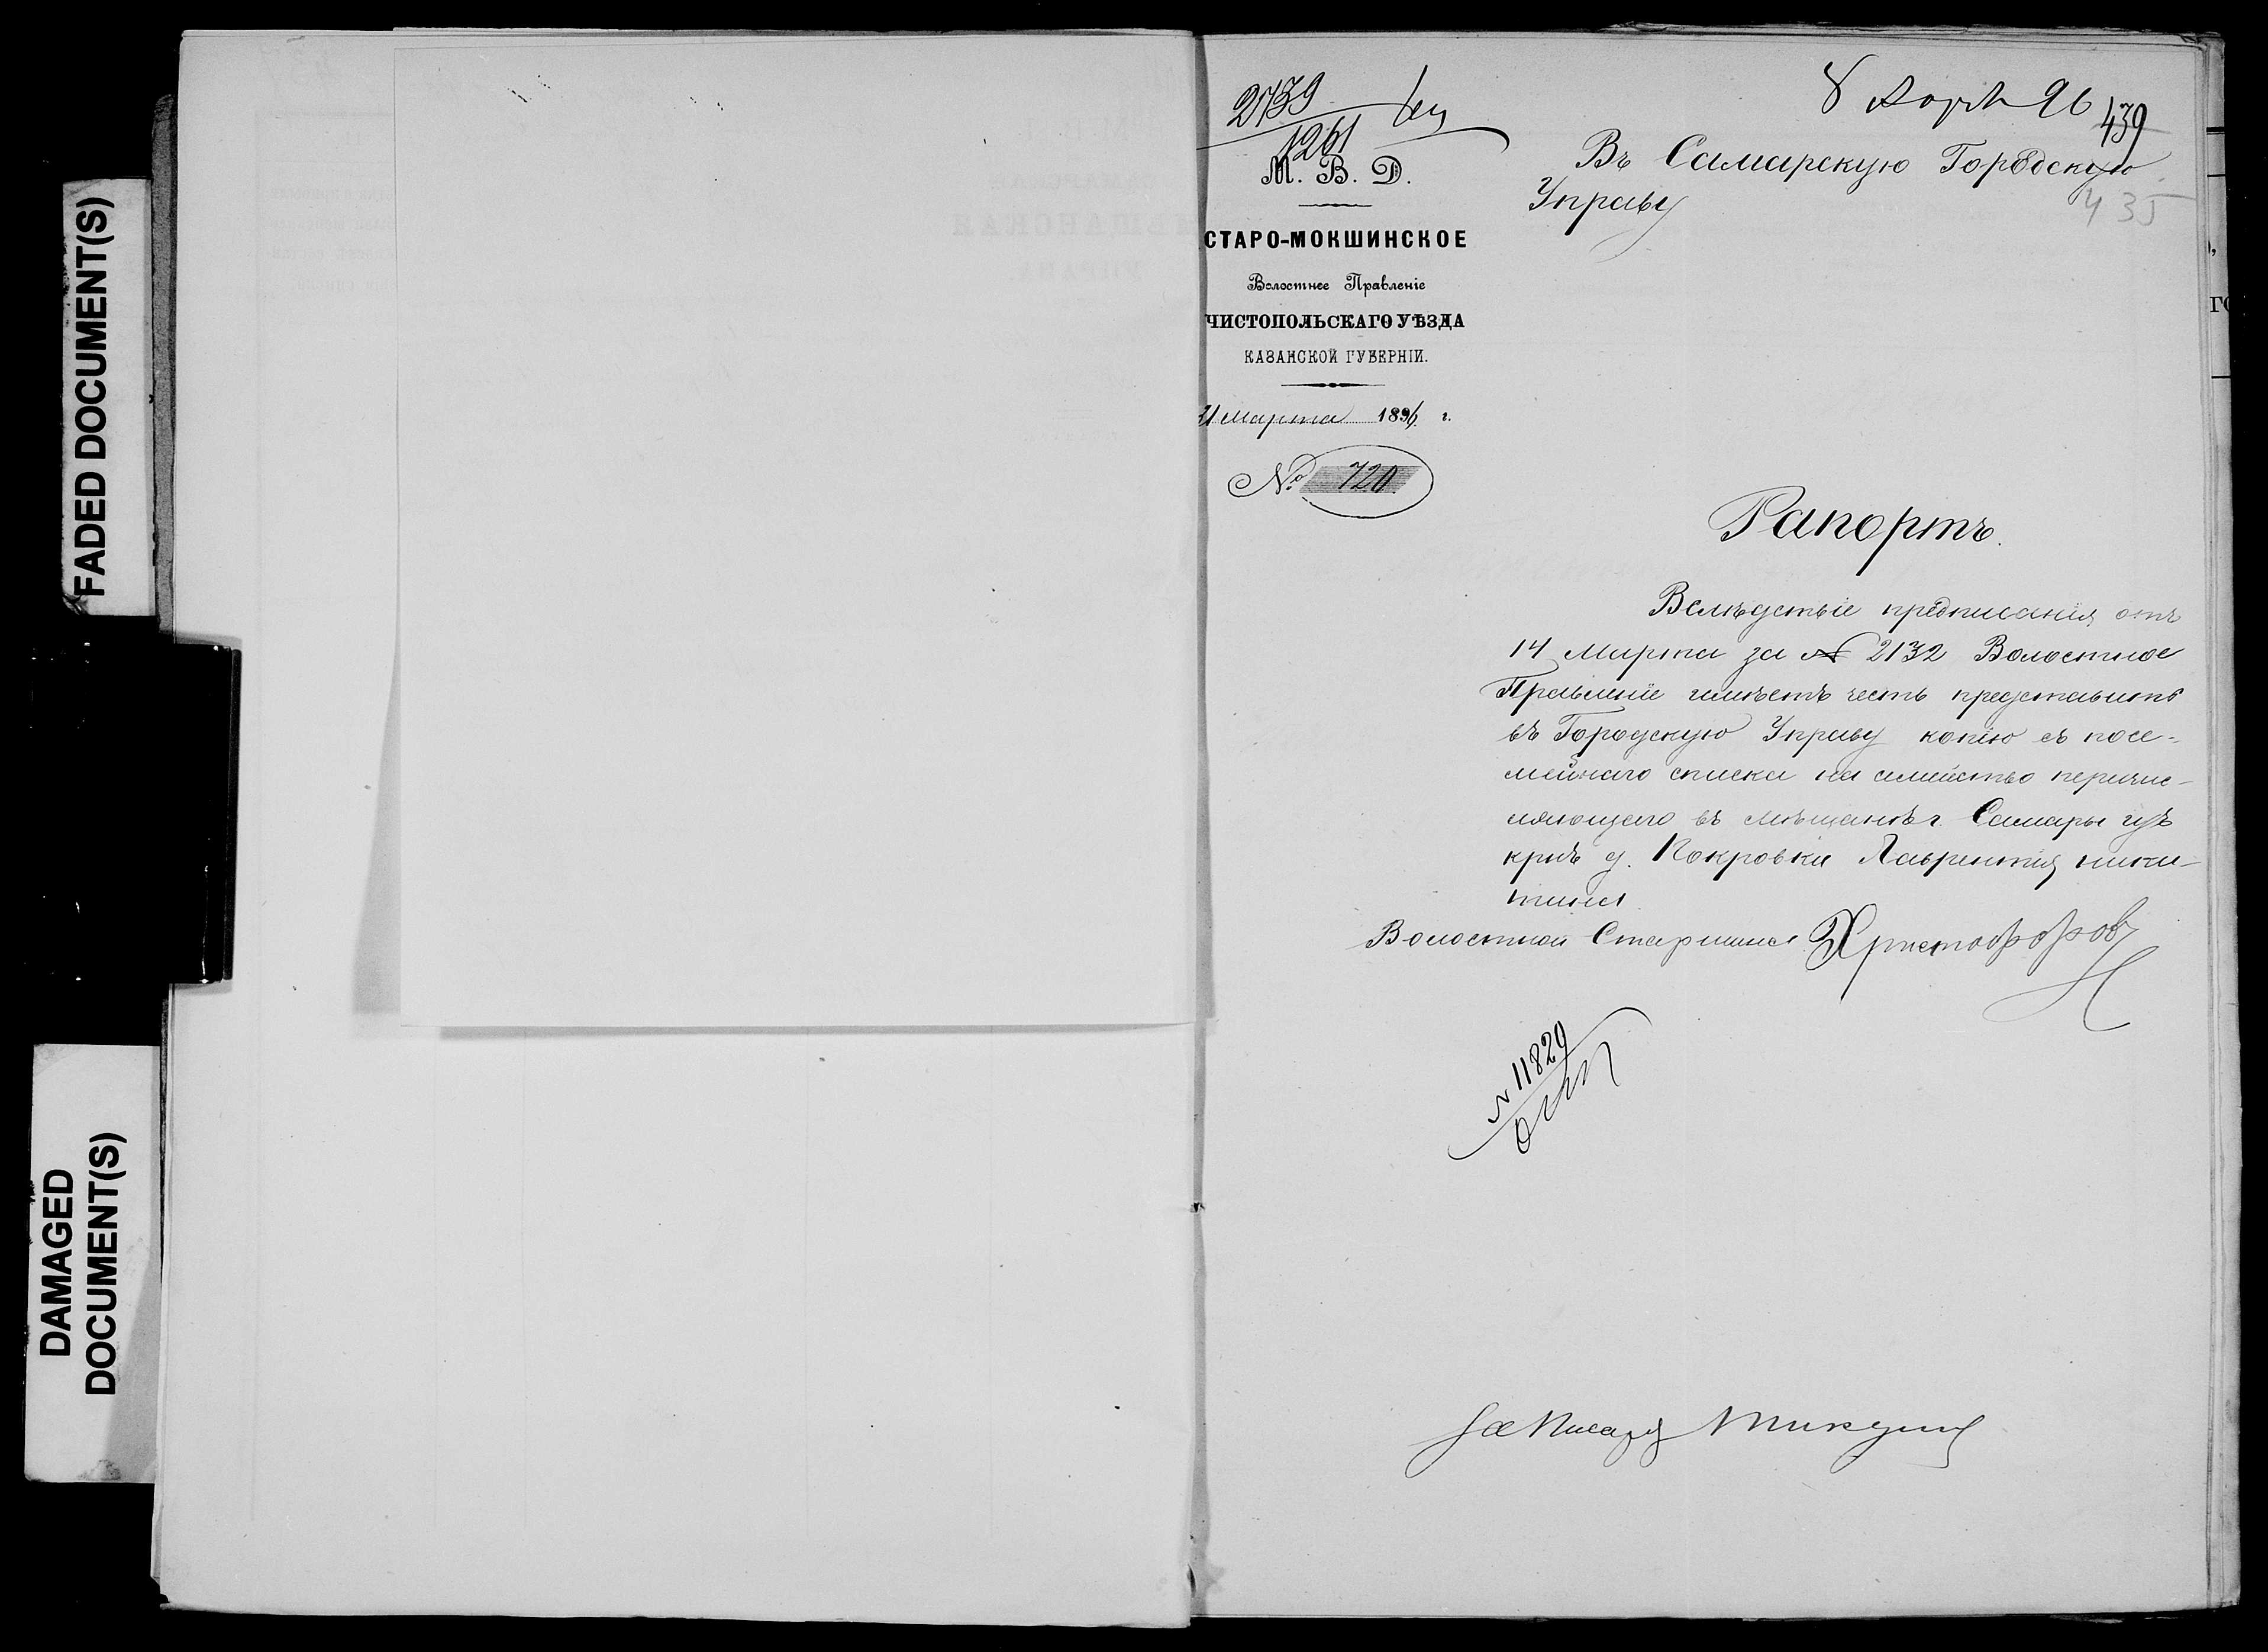 FADED DOCUMENT(S)
DAMAGED
DOCUMENT(S)
2739
1261
8 Апр 96
439
435
М. В. Д.
СТАРО-МОКШИНСКОЕ
Волостное Правленіе
ЧИСТОПОЛЬСКАГО УѢЗДА
КАЗАНСКОЙ ГУБЕРНІИ.
31 марта 1896 г.
№ 720
Въ Самарскую Городскую
Управу
Рапортъ.
Вслѣдствіе предписанія отъ
14 Марта за № 2132 Волостное
Правленіе имѣетъ честь представить
въ Городскую Управу копію съ посе-
мейнаго списка на семейство перечис-
ляющаго въ мѣщанѣ г. Самары изъ
кр. д. Покровки Лаврентія Ники-
тина
Волостной Старшина Христофоровъ
№ 11829
За Писаря